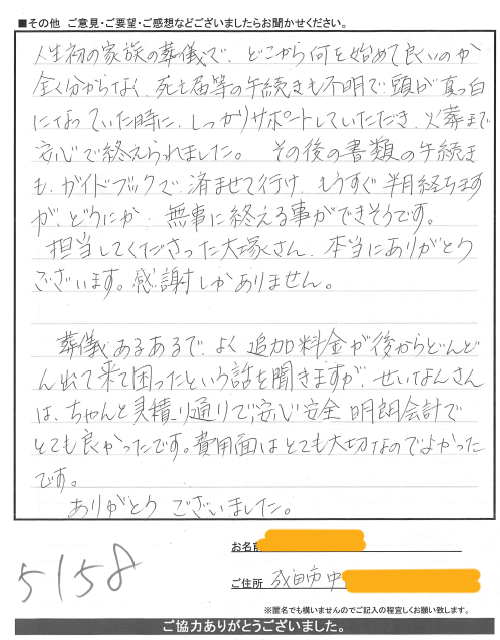 ■その他　ご意見・ご要望・ご感想などございましたらお聞かせください。
人生初の家族の葬儀で、どこから何を始めて良いのか
全く分からなく、死亡届等の手続きも不明で頭が真っ白
になっていた時に、しっかりサポートしていただき、火葬まで
安心で終えられました。　その後の書類の手続き
も、ガイドブックで、済ませて行け、もうすぐ半月経ちます
が、どうにか、無事に終える事ができそうです。
担当してくださった大塚さん、本当にありがとう
ございます。感謝しかありません。
葬儀あるあるで、よく追加料金が後からどんど
ん出て来て困ったという話を聞きますが、せいなんさん
は、ちゃんと見積り通りで安心安全 明朗会計で
とても良かったです。費用面はとても大切なのでよかった
です。
ありがとう ございました。
お名前
5158
ご住所　成田市中
※匿名でも構いませんのでご記入の程宜しくお願い致します。
ご協力ありがとうございました。